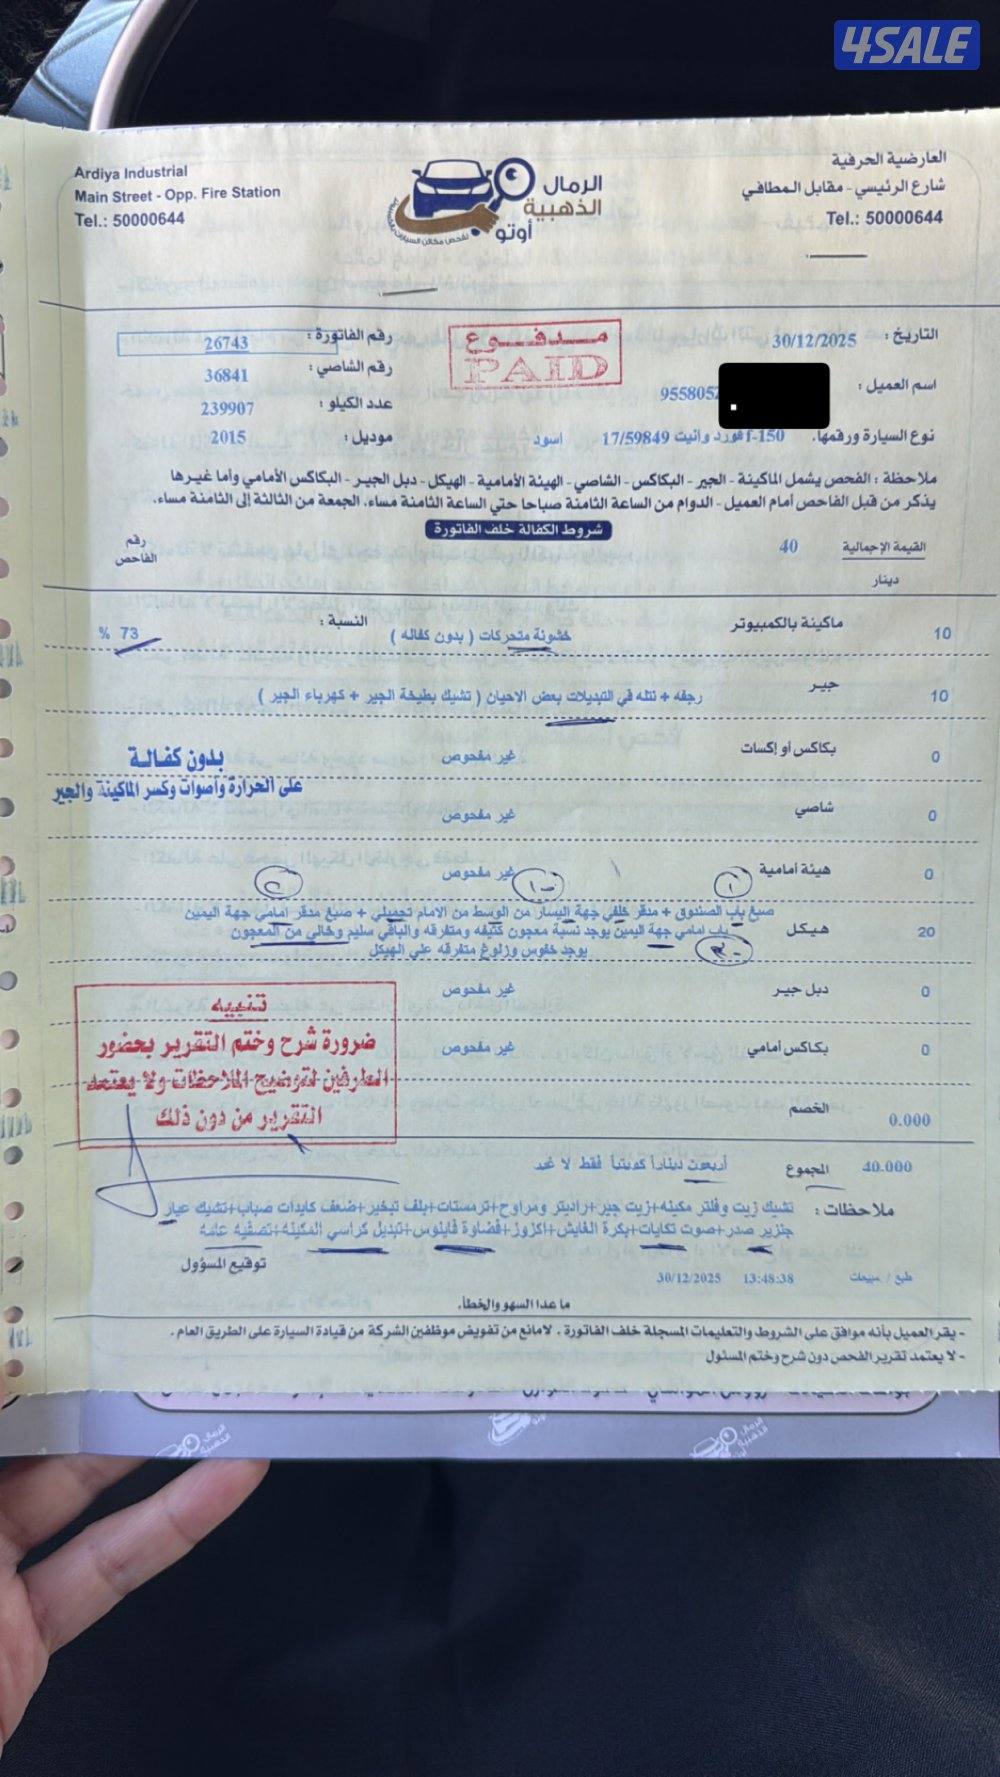 4SALE
Ardiya Industrial
Main Street - Opp. Fire Station
Tel.: 50000644
الرمال
الذهبية
أوتو
لفحص مكائن السيارات بالكمبيوتر
العارضية الحرفية
شارع الرئيسي - مقابل المطافي
Tel.: 50000644
التاريخ : 30/12/2025
مدفوع
PAID
رقم الفاتورة : 26743
رقم الشاصي : 36841
اسم العميل : 9558052
عدد الكيلو : 239907
نوع السيارة ورقمها. f-150 فورد وانيت 17/59849 اسود
موديل : 2015
ملاحظة : الفحص يشمل الماكينة - الجير - البكاكس - الشاصي - الهيئة الأمامية - الهيكل - دبل الجير - البكاكس الأمامي وأما غيرها
يذكر من قبل الفاحص أمام العميل - الدوام من الساعة الثامنة صباحا حتي الساعة الثامنة مساء. الجمعة من الثالثة إلى الثامنة مساء.
شروط الكفالة خلف الفاتورة
القيمة الإجمالية 40
دينار
رقم
الفاحص
10 ماكينة بالكمبيوتر خشونة متحركات ( بدون كفاله ) النسبة : 73 %
10 جير رجفه + نتله في التبديلات بعض الاحيان ( تشيك بطيخة الجير + كهرباء الجير )
0 بكاكس أو إكسات غير مفحوص
بدون كفالة
على الحرارة وأصوات وكسر الماكينة والجير
0 شاصي غير مفحوص
0 هيئة أمامية غير مفحوص
20 هيكل
صبغ باب الصندوق + مدقر خلفي جهة اليسار من الوسط من الامام تجميلي + صبغ مدقر امامي جهة اليمين
باب امامي جهة اليمين يوجد نسبة معجون كثيفه ومتفرقه والباقي سليم وخالي من المعجون
يوجد خفوس وزلوغ متفرقه على الهيكل
0 دبل جير غير مفحوص
0 بكاكس أمامي غير مفحوص
تنبيه
ضرورة شرح وختم التقرير بحضور
الطرفين لتوضيح الملاحظات ولا يعتمد
التقرير من دون ذلك
0.000 الخصم
40.000 المجموع أربعون ديناراً كويتياً فقط لا غير
ملاحظات : تشيك زيت وفلتر مكينه+زيت جير+راديتر ومراوح+ترمستات+بلف تبخير+ضعف كابدات صباب+تشيك عيار
جنزير صدر+صوت تكايات+بكرة القايش+اكزوز+قضاوة فايلوس+تبديل كراسي المكينه+تصفيه عامه
توقيع المسؤول
طبع / مبيعات 13:48:38 30/12/2025
ما عدا السهو والخطأ.
- يقر العميل بأنه موافق على الشروط والتعليمات المسجلة خلف الفاتورة . لامانع من تفويض موظفين الشركة من قيادة السيارة على الطريق العام .
- لا يعتمد تقرير الفحص دون شرح وختم المسئول